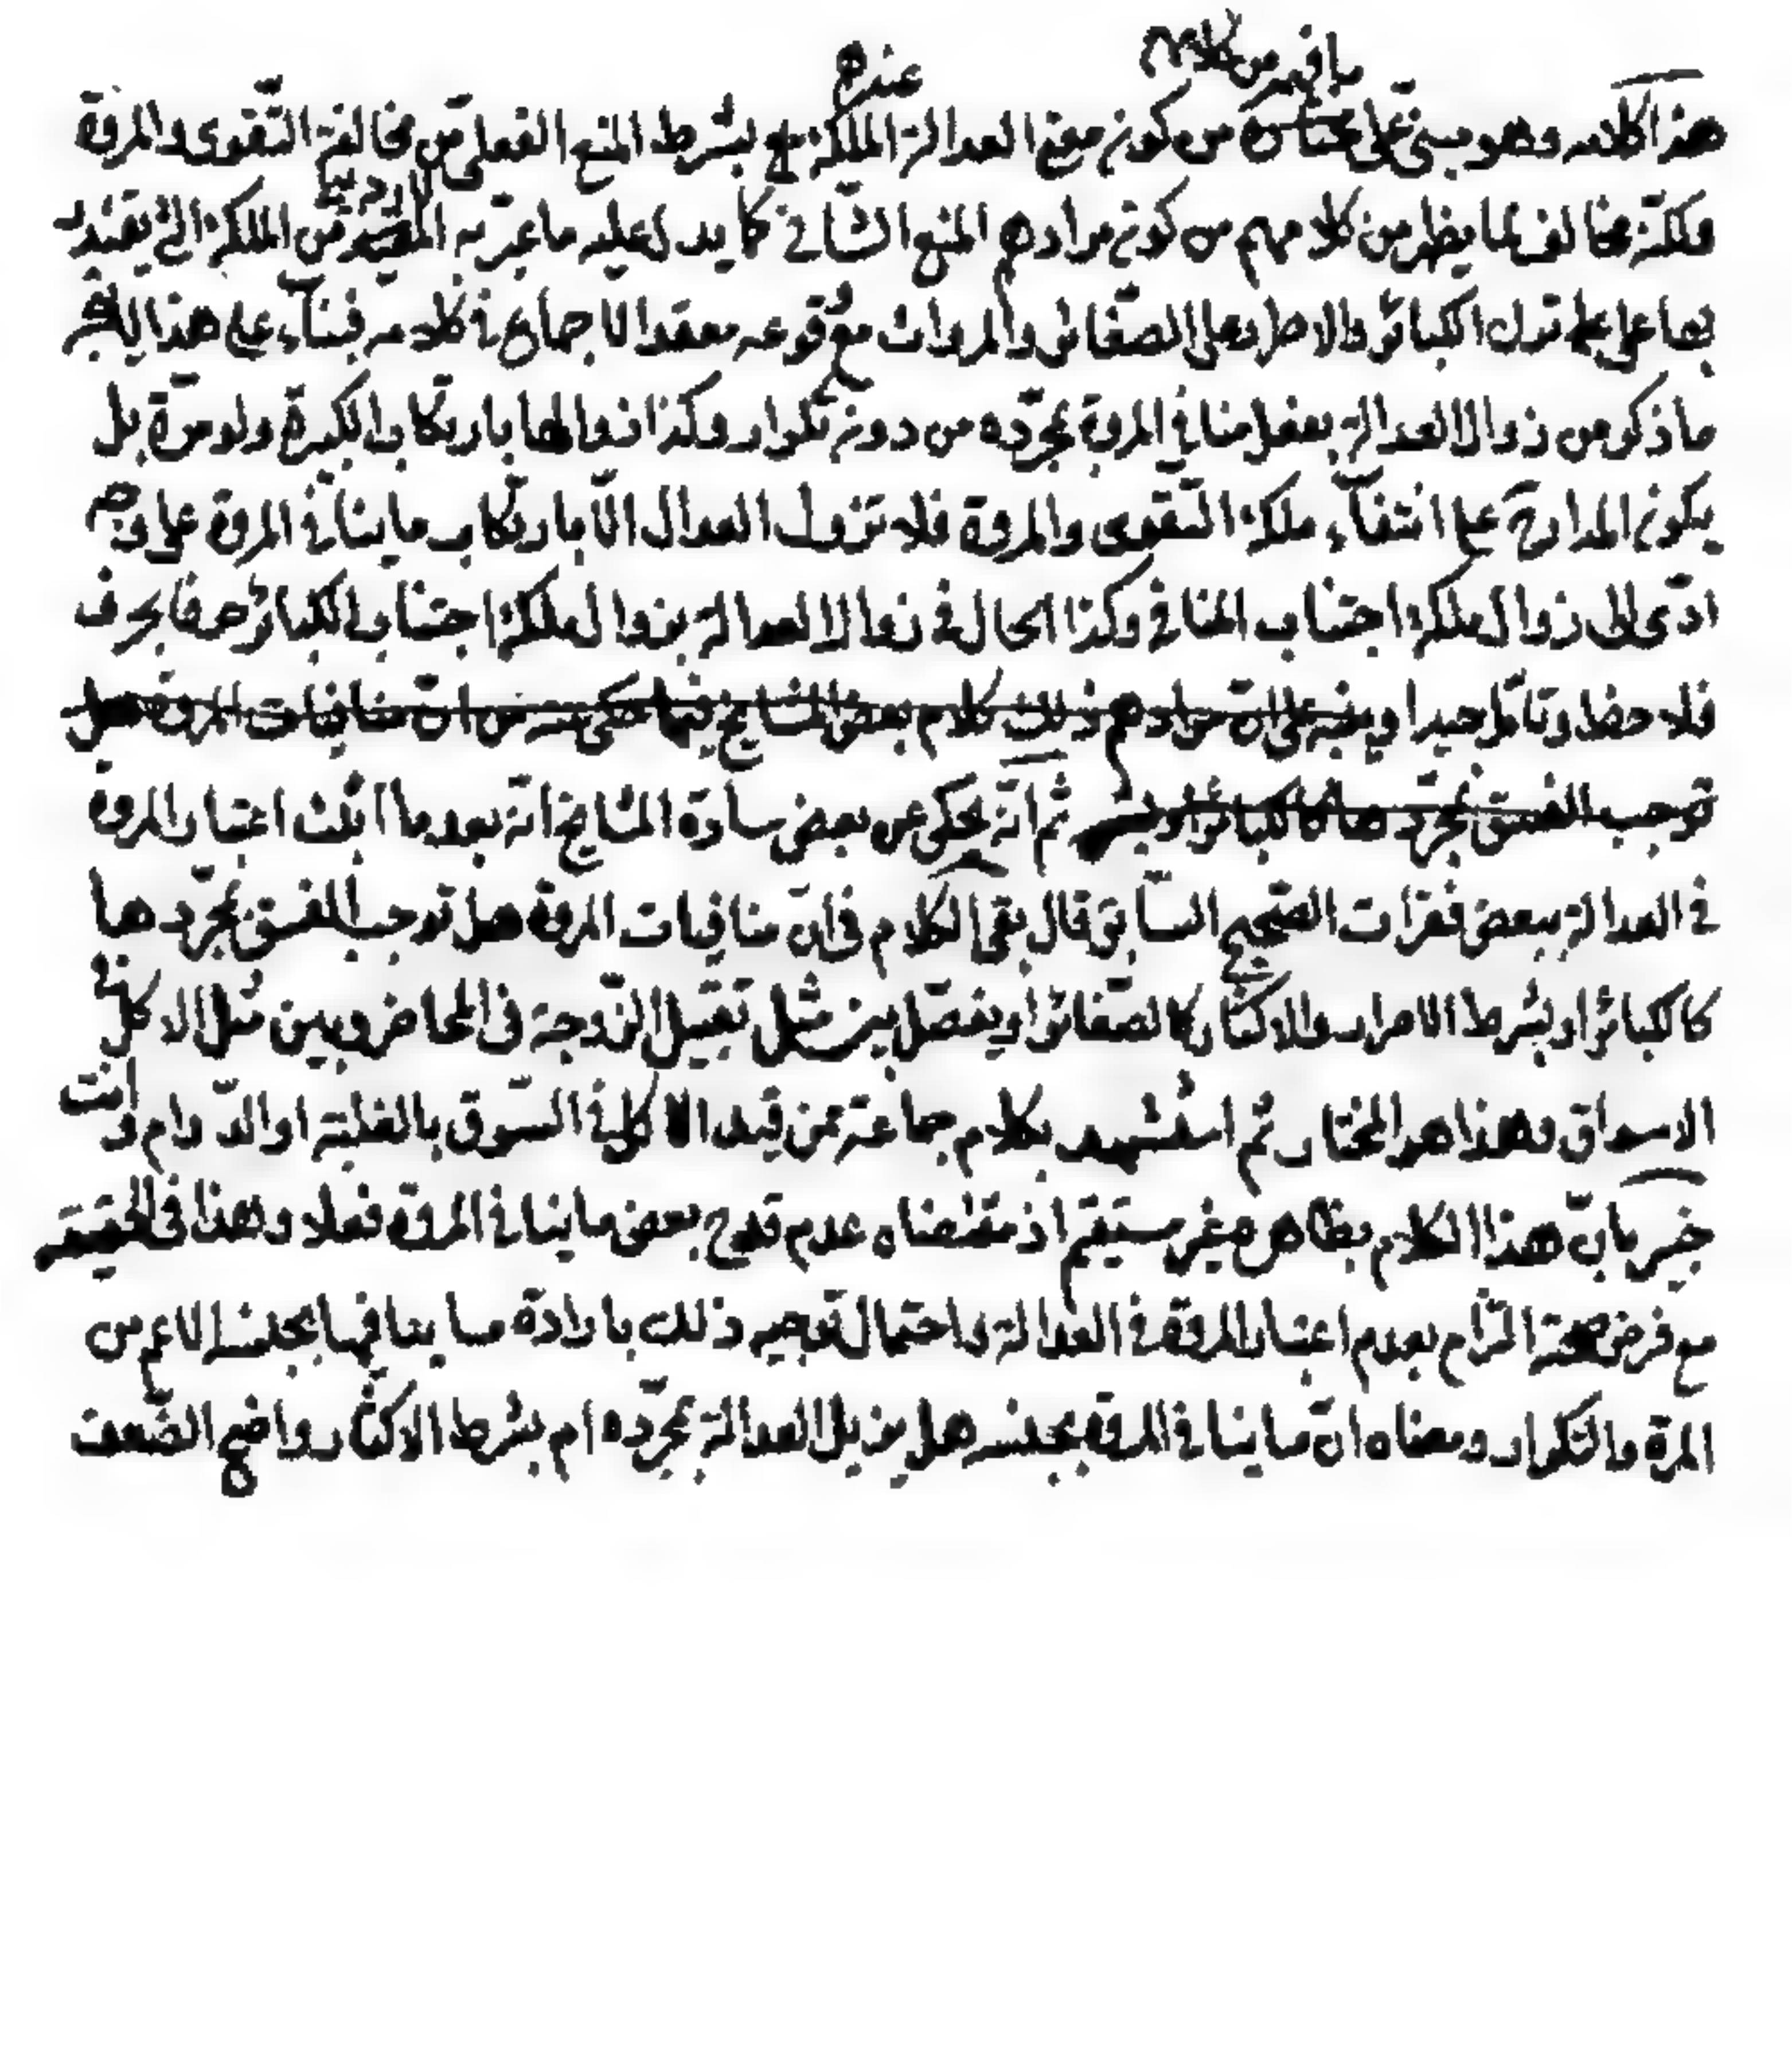 ما فهمه من كلامهم عندهم
هذا كلامه وهو مبنىّ على مختاره من كونه معنى العدالة الملكة بشرط المنع الفعلى من مخالفة التّقوى والمروّة
ولكنّه مخالف لما يظهر من كلامهم من كونه مرادهم المنع الشّأنى كما يدل عليه ما عبّر به الاردبيلى من الملكة الّتى يقتدر
بها على ترك الكبائر والاصرار على الصّغائر والمروات مع وقوعه معقد الاجماع فى كلامه فبناء على هذا لا يتجه
ما ذكر من زوال العدالة بفعل منافى المروة بمجرّده من دون تكرار وكذا زوالها بارتكاب الكبيرة ولو مرّة بل
يكون المدار ح على انتفاء ملكة التّقوى والمروة فلا تزول العدالة الّا بارتكاب ما ينافى المروة على وجه
ادّى الى زوال ملكة اجتناب المنافى وكذا الحال فى زوال العدالة بزوال ملكة اجتناب الكبائر حرفا بحرف
فلاحظ وتأمّل جيدا وينبه على انّ مرادهم ذلك كلام بعض المشايخ فيما حكى عنه من انّ منافيات المروة هل
توجب الفسق بمجرّدها كالكبائر او بشرط ثم انّه يحكى عن بعض سادة المشايخ انّه بعد ما اثبت اعتبار المروة
فى العدالة ببعض فقرات الصّحيح السّابق قال بقى الكلام فى انّ منافيات المروة هل توجب الفسق بمجرّدها
كالكبائر او بشرط الاصرار والاكثار كالصّغائر او يفصّل بين مثل تقبيل الزّوجة فى المحاضر وبين مثل الاكل فى
الاسواق وهذا هو المختار ثم استشهد بكلام جماعة ممن قيد الاكل فى السّوق بالغلبة او الدّوام وانت
خبير بانّ هذا الكلام بظاهره غير مستقيم اذ مقتضاه عدم قدح بعض ما ينافى المروة فعلا وهذا فى الحقيقة
مع فرض صحته التزام بعدم اعتبار المروة فى العدالة واحتمال توجيه ذلك بارادة ما ينافيها بجنسه الاعم من
المرة والتكرار ومعناه انّ ما ينافى المروة بجنسه هل يزيل العدالة بمجرّده ام بشرط الاكثار واضح الضّعف